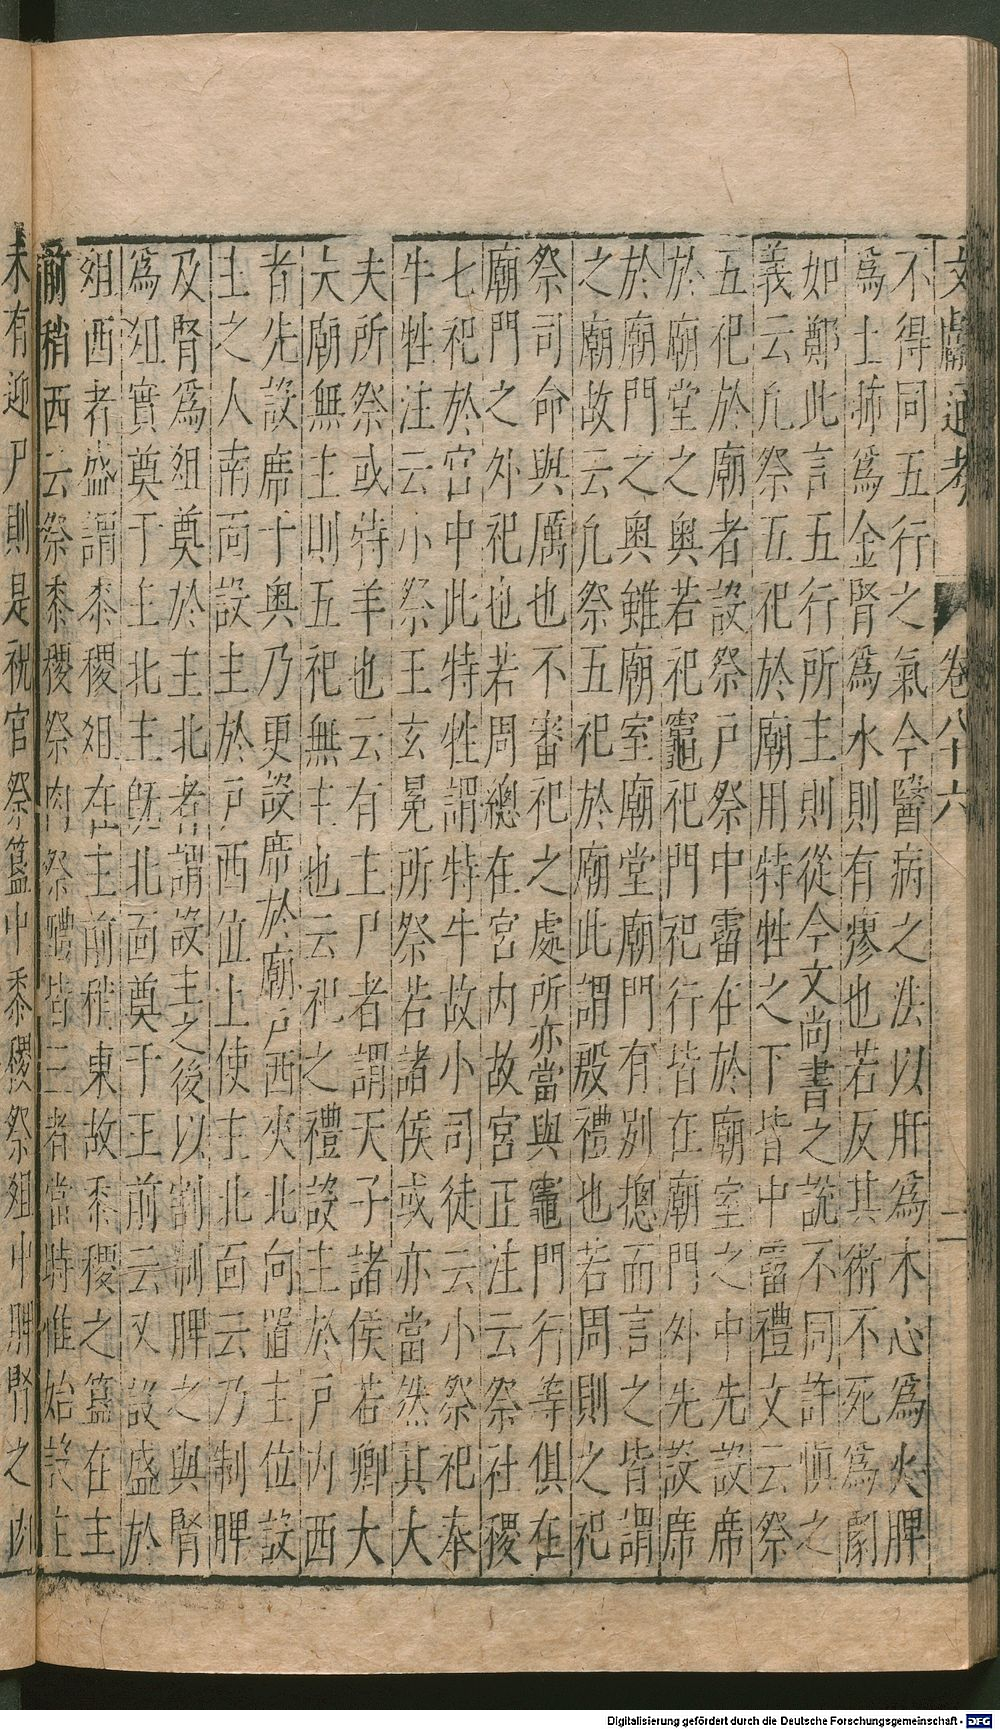 文獻通考 卷八十六 二
不得同五行之氣今醫病之法以肝爲木心爲火脾
爲土肺爲金腎爲水則有瘳也若反其術不死爲劇
如鄭此言五行所主則從今文尚書之說不同許慎之
義云凡祭五祀於廟用特牲之下皆中霤禮文云祭
五祀於廟者設祭戶祭中霤在於廟室之中先設席
於廟堂之奧若祀竈祀門祀行皆在廟門外先設席
於廟門之奧雖廟室廟堂廟門有別摠而言之皆謂
之廟故云凡祭五祀於廟此謂殷禮也若周則之祀
祭司命與厲也不審祀之處所亦當與竈門行等俱在
廟門之外祀也若周總在宮內故宮正注云祭社稷
七祀於宮中此特牲謂特牛故小司徒云小祭祀奉
牛牲注云小祭王玄冕所祭若諸侯或亦當然其大
夫所祭或特羊也云有主尸者謂天子諸侯若卿大
大廟無主則五祀無主也云祀之禮設主於戶內西
者先設席十奧乃更設席於廟戶西夾北向置主位設
主之人南面設主於戶西位上使主北面云乃制脾
及腎爲俎奠於主北者謂設主之後以割制脾之與腎
爲俎實奠于主北主旣北面奠于主前云又設盛於
俎西者盛謂黍稷俎在主前稍東故黍稷之簋在主
前稍西云祭黍稷祭肉祭醴皆三者當時惟始設主
未有迎尸則是祝官祭簋中黍稷祭俎中脾腎之肉
Digitalisierung gefördert durch die Deutsche Forschungsgemeinschaft - DFG